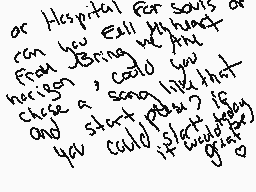 or Hospital For souls or
can you Fell My heart
From Bring me the
horizon, could you
chose a song like that
and start please? if
you could start today
it would be
great ♡